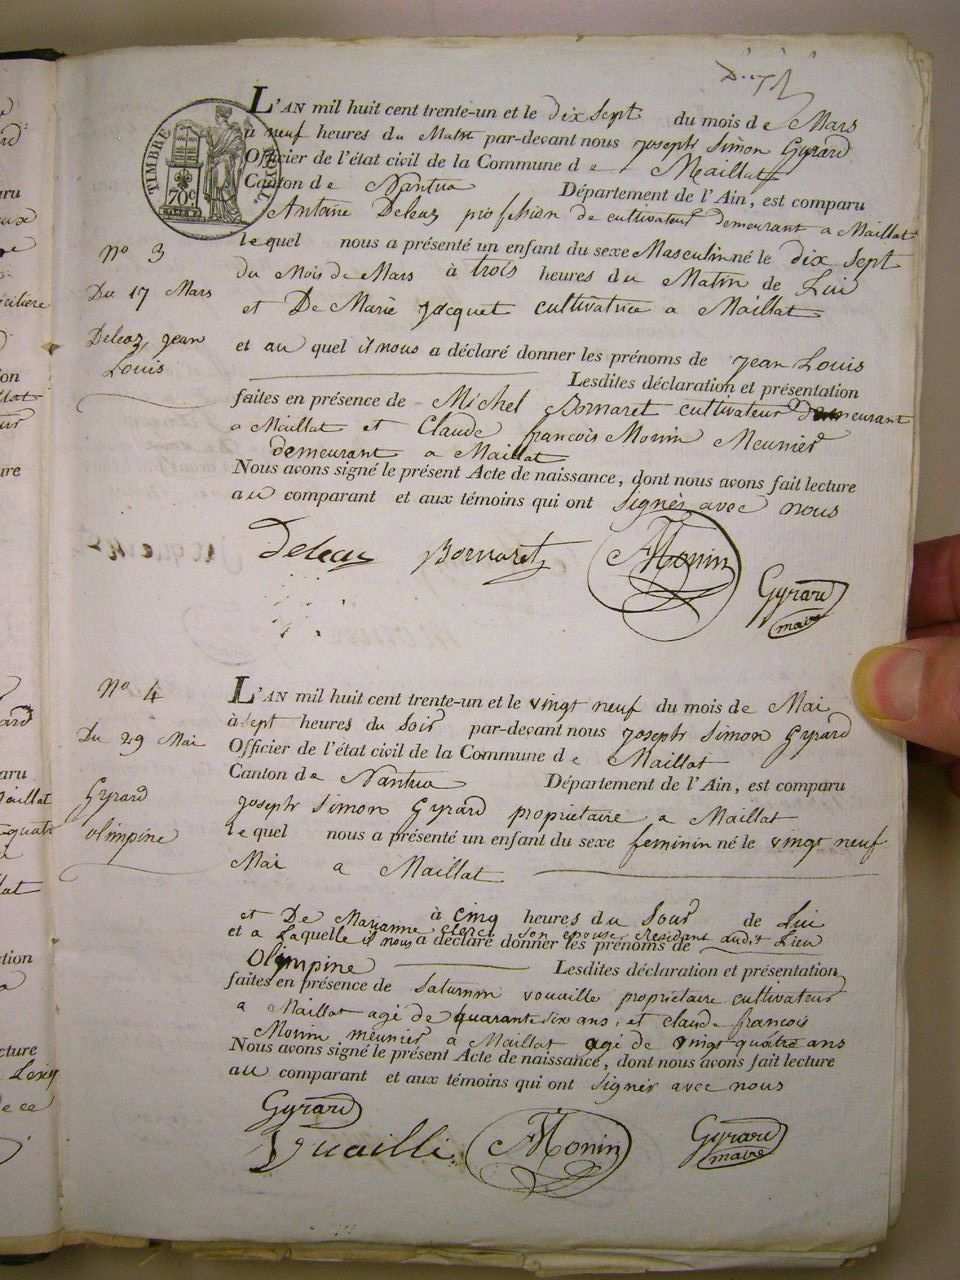 TIMBRE
70c
L'AN mil huit cent trente-un et le dix Sept du mois de Mars
à neuf heures du Matin par-devant nous joseph Simon Gyrard
Officier de l'état civil de la Commune de Maillat
Canton de Nantua Département de l'Ain, est comparu
Antoine Deleaz profession de cultivateur demeurant a Maillat
lequel nous a présenté un enfant du sexe Masculin né le dix Sept
du Mois de Mars à trois heures du Matin de Lui
et De Marie jacquet cultivatrice a Maillat
et au quel il nous a déclaré donner les prénoms de jean Louis
Lesdites déclaration et présentation
faites en présence de Michel Bornaret cultivateur demeurant
a Maillat et Claude françois Monin Meunier
demeurant a Maillat
Nous avons signé le présent Acte de naissance, dont nous avons fait lecture
au comparant et aux témoins qui ont Signés avec nous
No 3
Du 17 Mars
Deleaz, jean
Louis
Deleaz Bornaret Monin
Gyrard
maire
No 4
Du 29 Mai
Gyrard
olimpine
L'AN mil huit cent trente-un et le vingt neuf du mois de Mai
à sept heures du soir par-devant nous joseph Simon Gyrard
Officier de l'état civil de la Commune de Maillat
Canton de Nantua Département de l'Ain, est comparu
joseph Simon Gyrard propriétaire a Maillat
lequel nous a présenté un enfant du sexe feminin né le vingt neuf
Mai a Maillat
à cinq heures du Sour de Lui
et De Marianne clerc son epouse Residant audit Lieu
et a Laquelle il nous a déclaré donner les prénoms de
Olimpine Lesdites déclaration et présentation
faites en présence de Saturnin vouaille propriétaire cultivateur
a Maillat agé de quarante six ans, et claude françois
Monin meunier a Maillat agé de vingt quatre ans
Nous avons signé le présent Acte de naissance, dont nous avons fait lecture
au comparant et aux témoins qui ont signés avec nous
Gyrard
Vuailli Monin Gyrard
maire